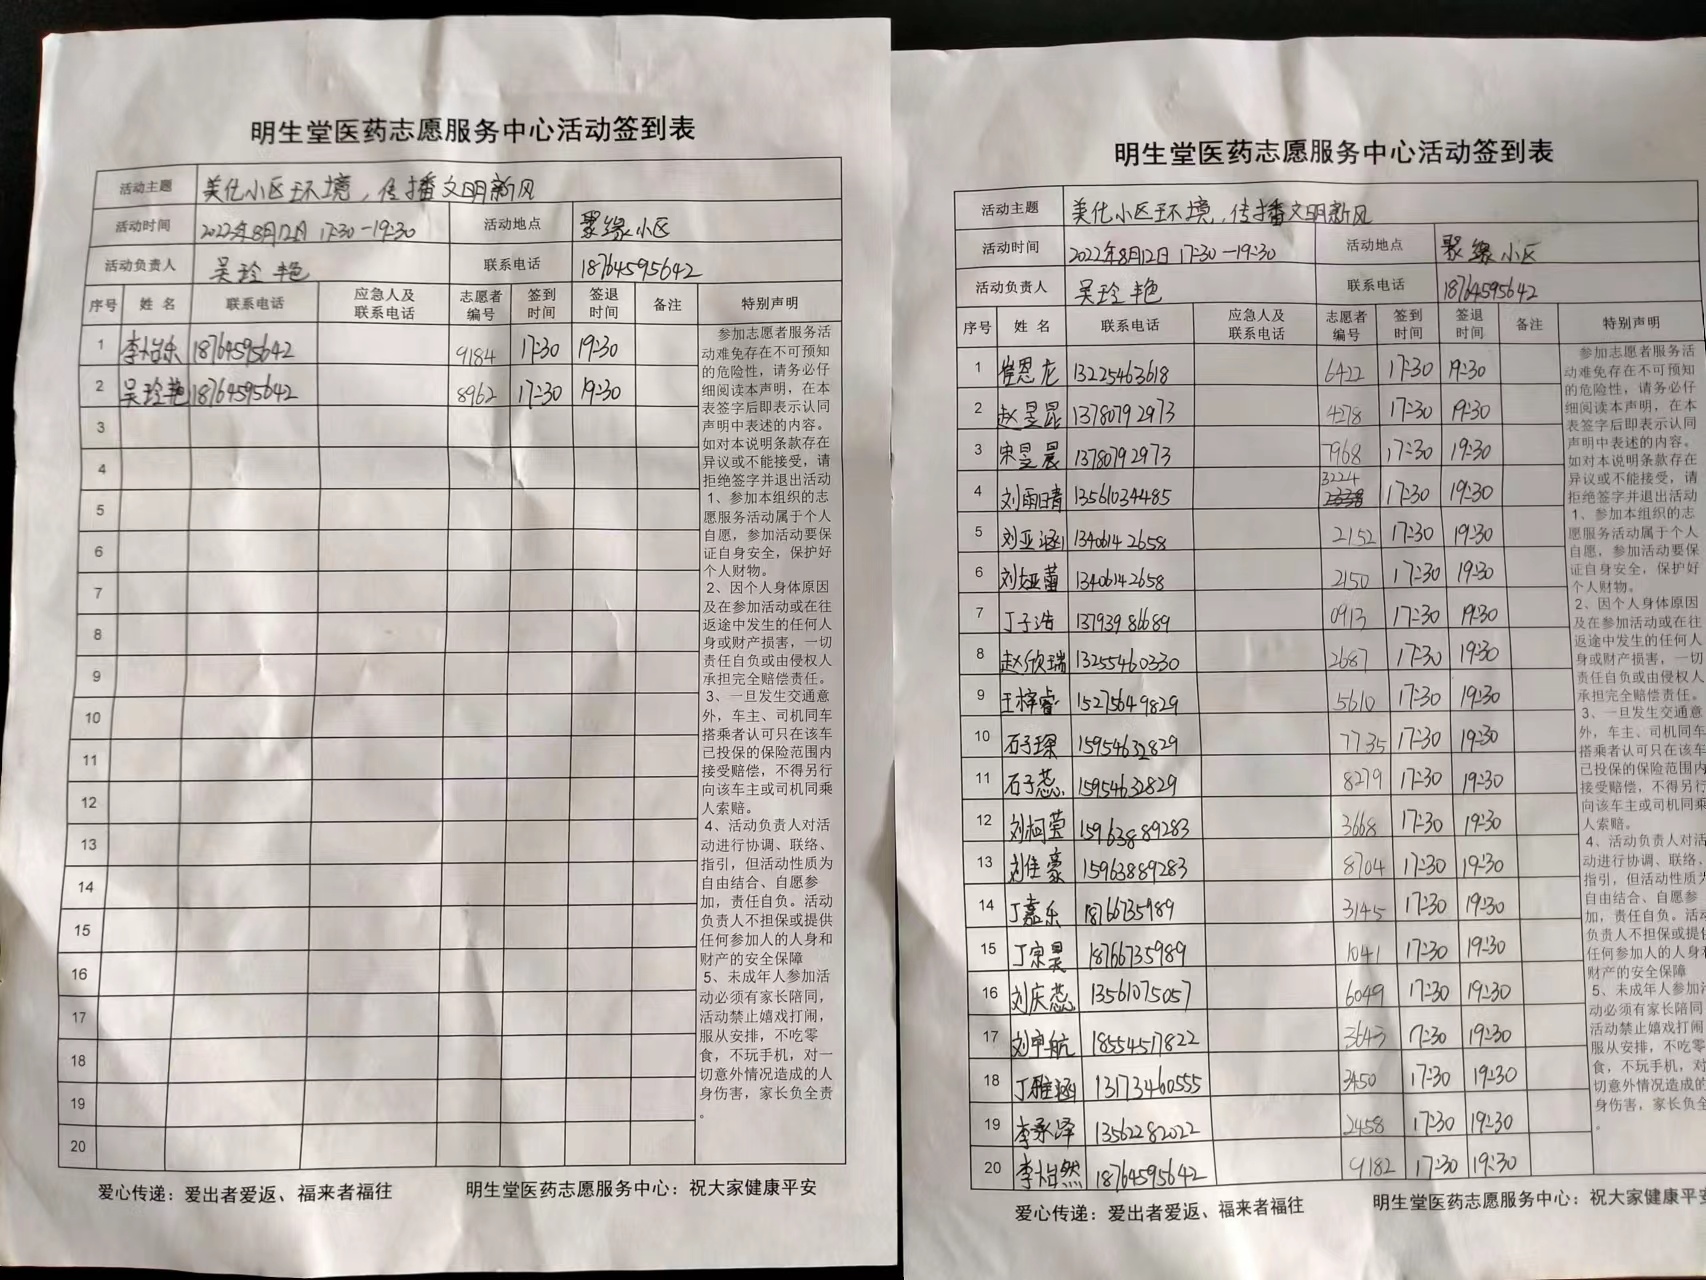 明生堂医药志愿服务中心活动签到表
活动主题 美化小区环境,传播文明新风
活动时间 2022年8月12日 17:30-19:30 活动地点 聚缘小区
活动负责人 吴玲艳 联系电话 18764595642
序号 姓名 联系电话 应急人及联系电话 志愿者编号 签到时间 签退时间 备注 特别声明
1 李怡乐 18764595642 9184 17:30 19:30
2 吴玲艳 18764595642 8962 17:30 19:30
3
4
5
6
7
8
9
10
11
12
13
14
15
16
17
18
19
20
参加志愿者服务活
动难免存在不可预知
的危险性,请务必仔
细阅读本声明,在本
表签字后即表示认同
声明中表述的内容。
如对本说明条款存在
异议或不能接受,请
拒绝签字并退出活动
1、参加本组织的志
愿服务活动属于个人
自愿,参加活动要保
证自身安全,保护好
个人财物。
2、因个人身体原因
及在参加活动或在往
返途中发生的任何人
身或财产损害,一切
责任自负或由侵权人
承担完全赔偿责任。
3、一旦发生交通意
外,车主、司机同车
搭乘者认可只在该车
已投保的保险范围内
接受赔偿,不得另行
向该车主或司机同乘
人索赔。
4、活动负责人对活
动进行协调、联络、
指引,但活动性质为
自由结合、自愿参
加,责任自负。活动
负责人不担保或提供
任何参加人的人身和
财产的安全保障
5、未成年人参加活
动必须有家长陪同,
活动禁止嬉戏打闹,
服从安排,不吃零
食,不玩手机,对一
切意外情况造成的人
身伤害,家长负全责
。
爱心传递:爱出者爱返、福来者福往 明生堂医药志愿服务中心:祝大家健康平安
明生堂医药志愿服务中心活动签到表
活动主题 美化小区环境,传播文明新风
活动时间 2022年8月12日 17:30-19:30 活动地点 聚缘小区
活动负责人 吴玲艳 联系电话 18764595642
序号 姓名 联系电话 应急人及联系电话 志愿者编号 签到时间 签退时间 备注 特别声明
1 崔恩龙 13225463618 6422 17:30 19:30
2 赵昱昆 13780792973 4278 17:30 19:30
3 宋昱晨 13780792973 7968 17:30 19:30
4 刘雨晴 13561034485 3224 17:30 19:30
5 刘亚涵 13406142658 2152 17:30 19:30
6 刘娅蕾 13406142658 2150 17:30 19:30
7 丁子浩 13793986689 0913 17:30 19:30
8 赵欣瑞 13255460330 2687 17:30 19:30
9 王梓睿 15275649829 5610 17:30 19:30
10 石子琛 15954632829 7735 17:30 19:30
11 石子蕊 15954632829 8279 17:30 19:30
12 刘柯莹 15963889283 3668 17:30 19:30
13 刘佳豪 15963889283 8704 17:30 19:30
14 丁嘉乐 18766735989 3145 17:30 19:30
15 丁宗昊 18766735989 1041 17:30 19:30
16 刘庆蕊 13561075057 6049 17:30 19:30
17 刘宇航 18554517822 3643 17:30 19:30
18 丁雅涵 13173460555 3450 17:30 19:30
19 李承泽 13562282022 2458 17:30 19:30
20 李怡然 18764595642 9182 17:30 19:30
参加志愿者服务活
动难免存在不可预知
的危险性,请务必仔
细阅读本声明,在本
表签字后即表示认同
声明中表述的内容。
如对本说明条款存在
异议或不能接受,请
拒绝签字并退出活动
1、参加本组织的志
愿服务活动属于个人
自愿,参加活动要保
证自身安全,保护好
个人财物。
2、因个人身体原因
及在参加活动或在往
返途中发生的任何人
身或财产损害,一切
责任自负或由侵权人
承担完全赔偿责任。
3、一旦发生交通意
外,车主、司机同车
搭乘者认可只在该车
已投保的保险范围内
接受赔偿,不得另行
向该车主或司机同乘
人索赔。
4、活动负责人对活
动进行协调、联络、
指引,但活动性质为
自由结合、自愿参
加,责任自负。活动
负责人不担保或提供
任何参加人的人身和
财产的安全保障
5、未成年人参加活
动必须有家长陪同
活动禁止嬉戏打闹
服从安排,不吃零
食,不玩手机,对
切意外情况造成的
身伤害,家长负全
。
爱心传递:爱出者爱返、福来者福往 明生堂医药志愿服务中心:祝大家健康平安